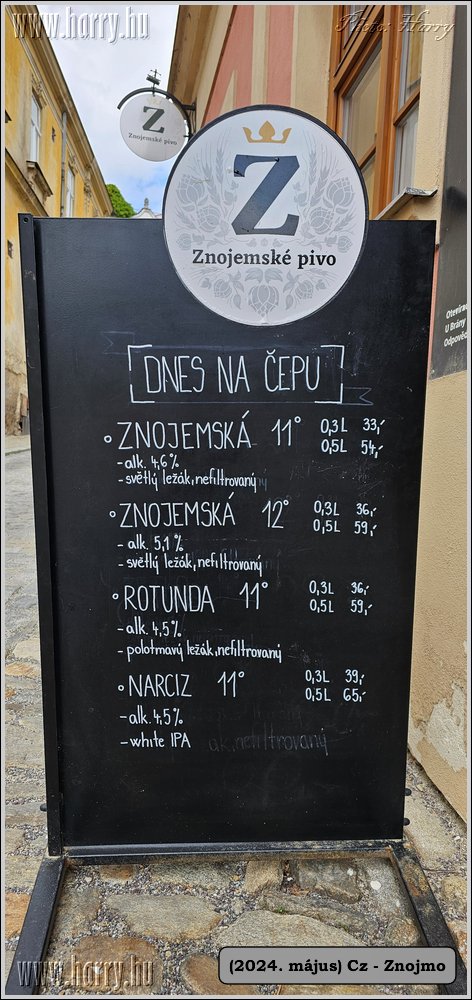 www.harry.hu
Photo: Harry
Z
Znojemské pivo
Z
Znojemské pivo
Otevírac
U Brány
Odpověd
DNES NA ČEPU
ZNOJEMSKÁ 11° 0,3L 33,-
0,5L 54,-
- alk. 4,6%
- světlý ležák, nefiltrovaný
ZNOJEMSKÁ 12° 0,3L 36,-
0,5L 59,-
- alk. 5,1 %
- světlý ležák, nefiltrovaný
ROTUNDA 11° 0,3L 36,-
0,5L 59,-
- alk. 4,5%
- polotmavý ležák, nefiltrovaný
NARCIZ 11° 0,3L 39,-
0,5L 65,-
- alk. 4,5%
- white IPA
nefiltrovaný
www.harry.hu
(2024. május) Cz - Znojmo